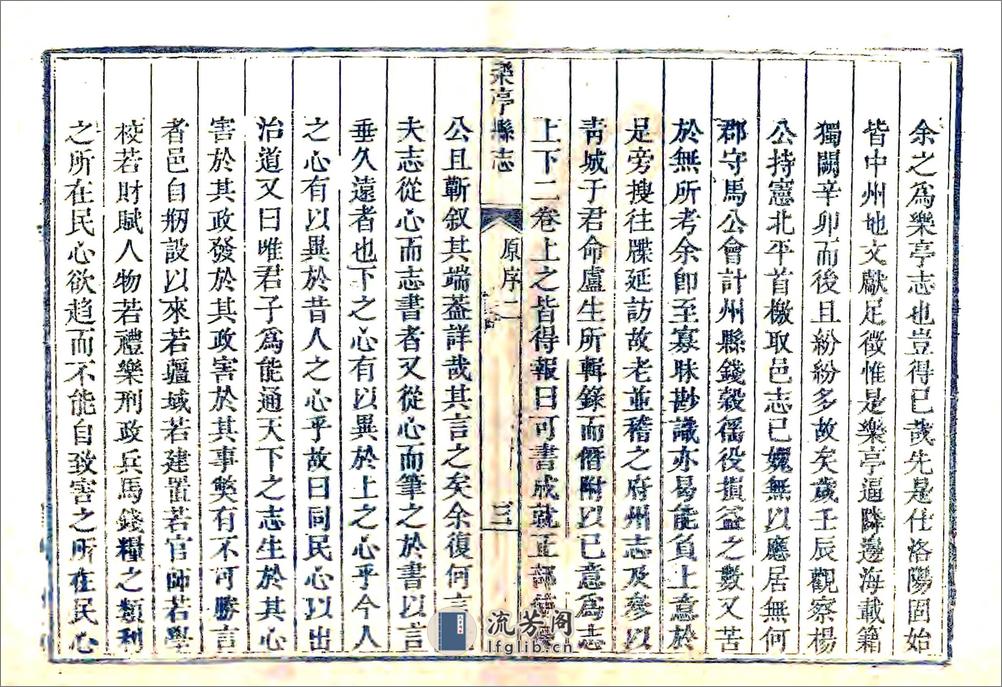 余之為樂亭志也豈得已哉先是仕洛陽固始
皆中州地文獻足徵惟是樂亭逼隣邊海載籍
獨闕辛卯而後且紛紛多故矣歲壬辰觀察楊
公持憲北平首檄取邑志已媿無以應居無何
郡守馬公會計州縣錢穀徭役損益之數又苦
於無所考余即至寡昧尠識亦曷能負上意於
足旁搜往牒延訪故老並稽之府州志及參以
靑城于君命盧生所輯錄而僭附以已意為志
上下二卷上之皆得報曰可書成就正部
樂亭縣志
原序二
三
公且蘄叙其端葢詳哉其言之矣余復何言
夫志從心而志書者又從心而筆之於書以言
垂久遠者也下之心有以異於上之心乎今人
之心有以異於昔人之心乎故曰同民心以出
治道又曰唯君子爲能通天下之志生於其心
害於其政發於其政害於其事獘有不可勝言
者邑自剏設以來若疆域若建置若官師若學
校若財賦人物若禮樂刑政兵馬錢糧之類利
之所在民心欲趋而不能自致害之所在民心
流芳阁
lfglib.cn